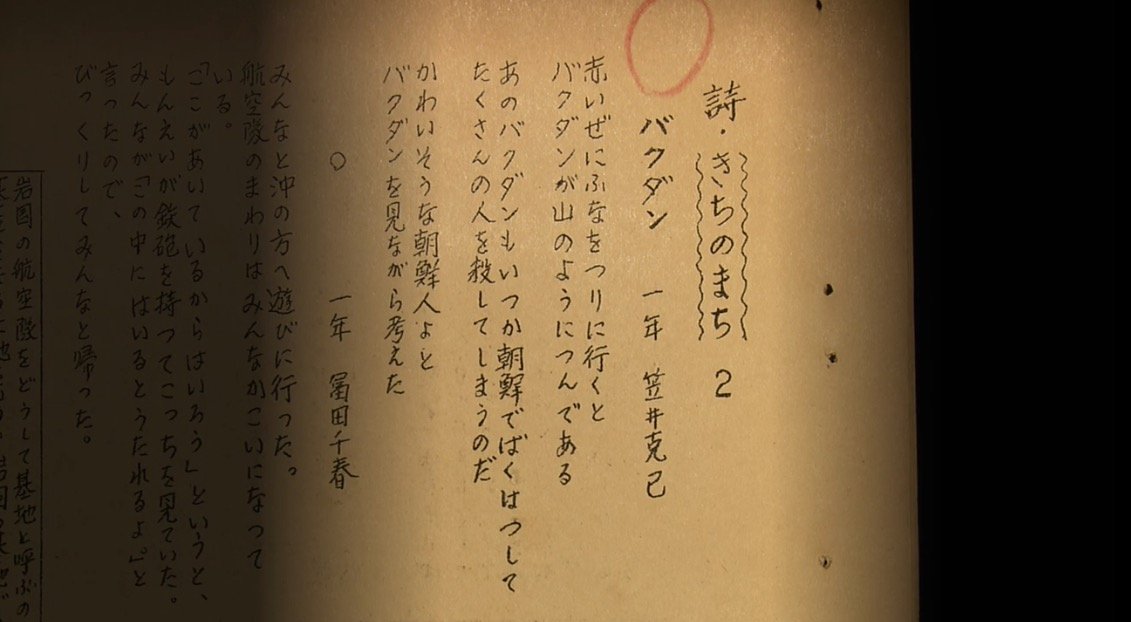 詩・きちのまち 2
バクダン 一年 笠井克己
赤いぜにふなをつりに行くと
バクダンが山のようにつんである
あのバクダンもいつか朝鮮でばくはつして
たくさんの人を殺してしまうのだ
かわいそうな朝鮮人よと
バクダンを見ながら考えた
○ 一年 冨田千春
みんなと沖の方へ遊びに行った。
航空隊のまわりはみんなかこいになって
いる。
「ここがあいているからはいろう」というと、
もんえいが鉄砲を持つてこっちを見ていた。
みんなが「この中にはいるとうたれるよ。」と
言ったので、
びっくりしてみんなと帰った。
岩国の航空隊をどうして基地と呼ぶの